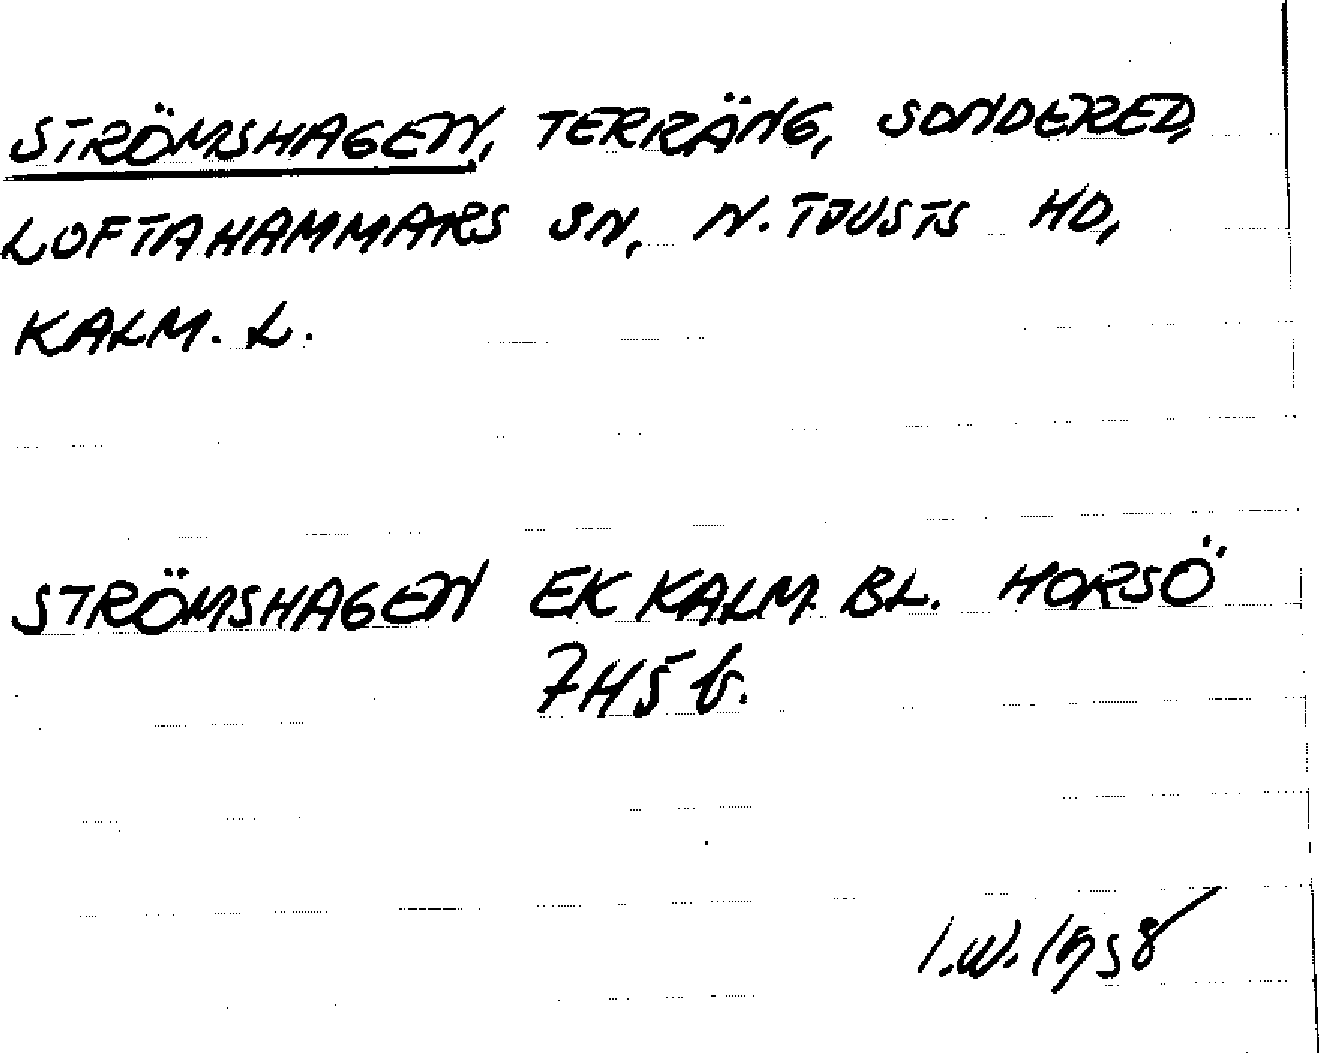 STRÖMSHAGEN, TERRÄNG, SONDERED,
LOFTAHAMMARS SN, N. TJUSTS HD,
KALM. L.
STRÖMSHAGEN EK KALM. BL. HORSÖ
7H5b.
I.W. 1958